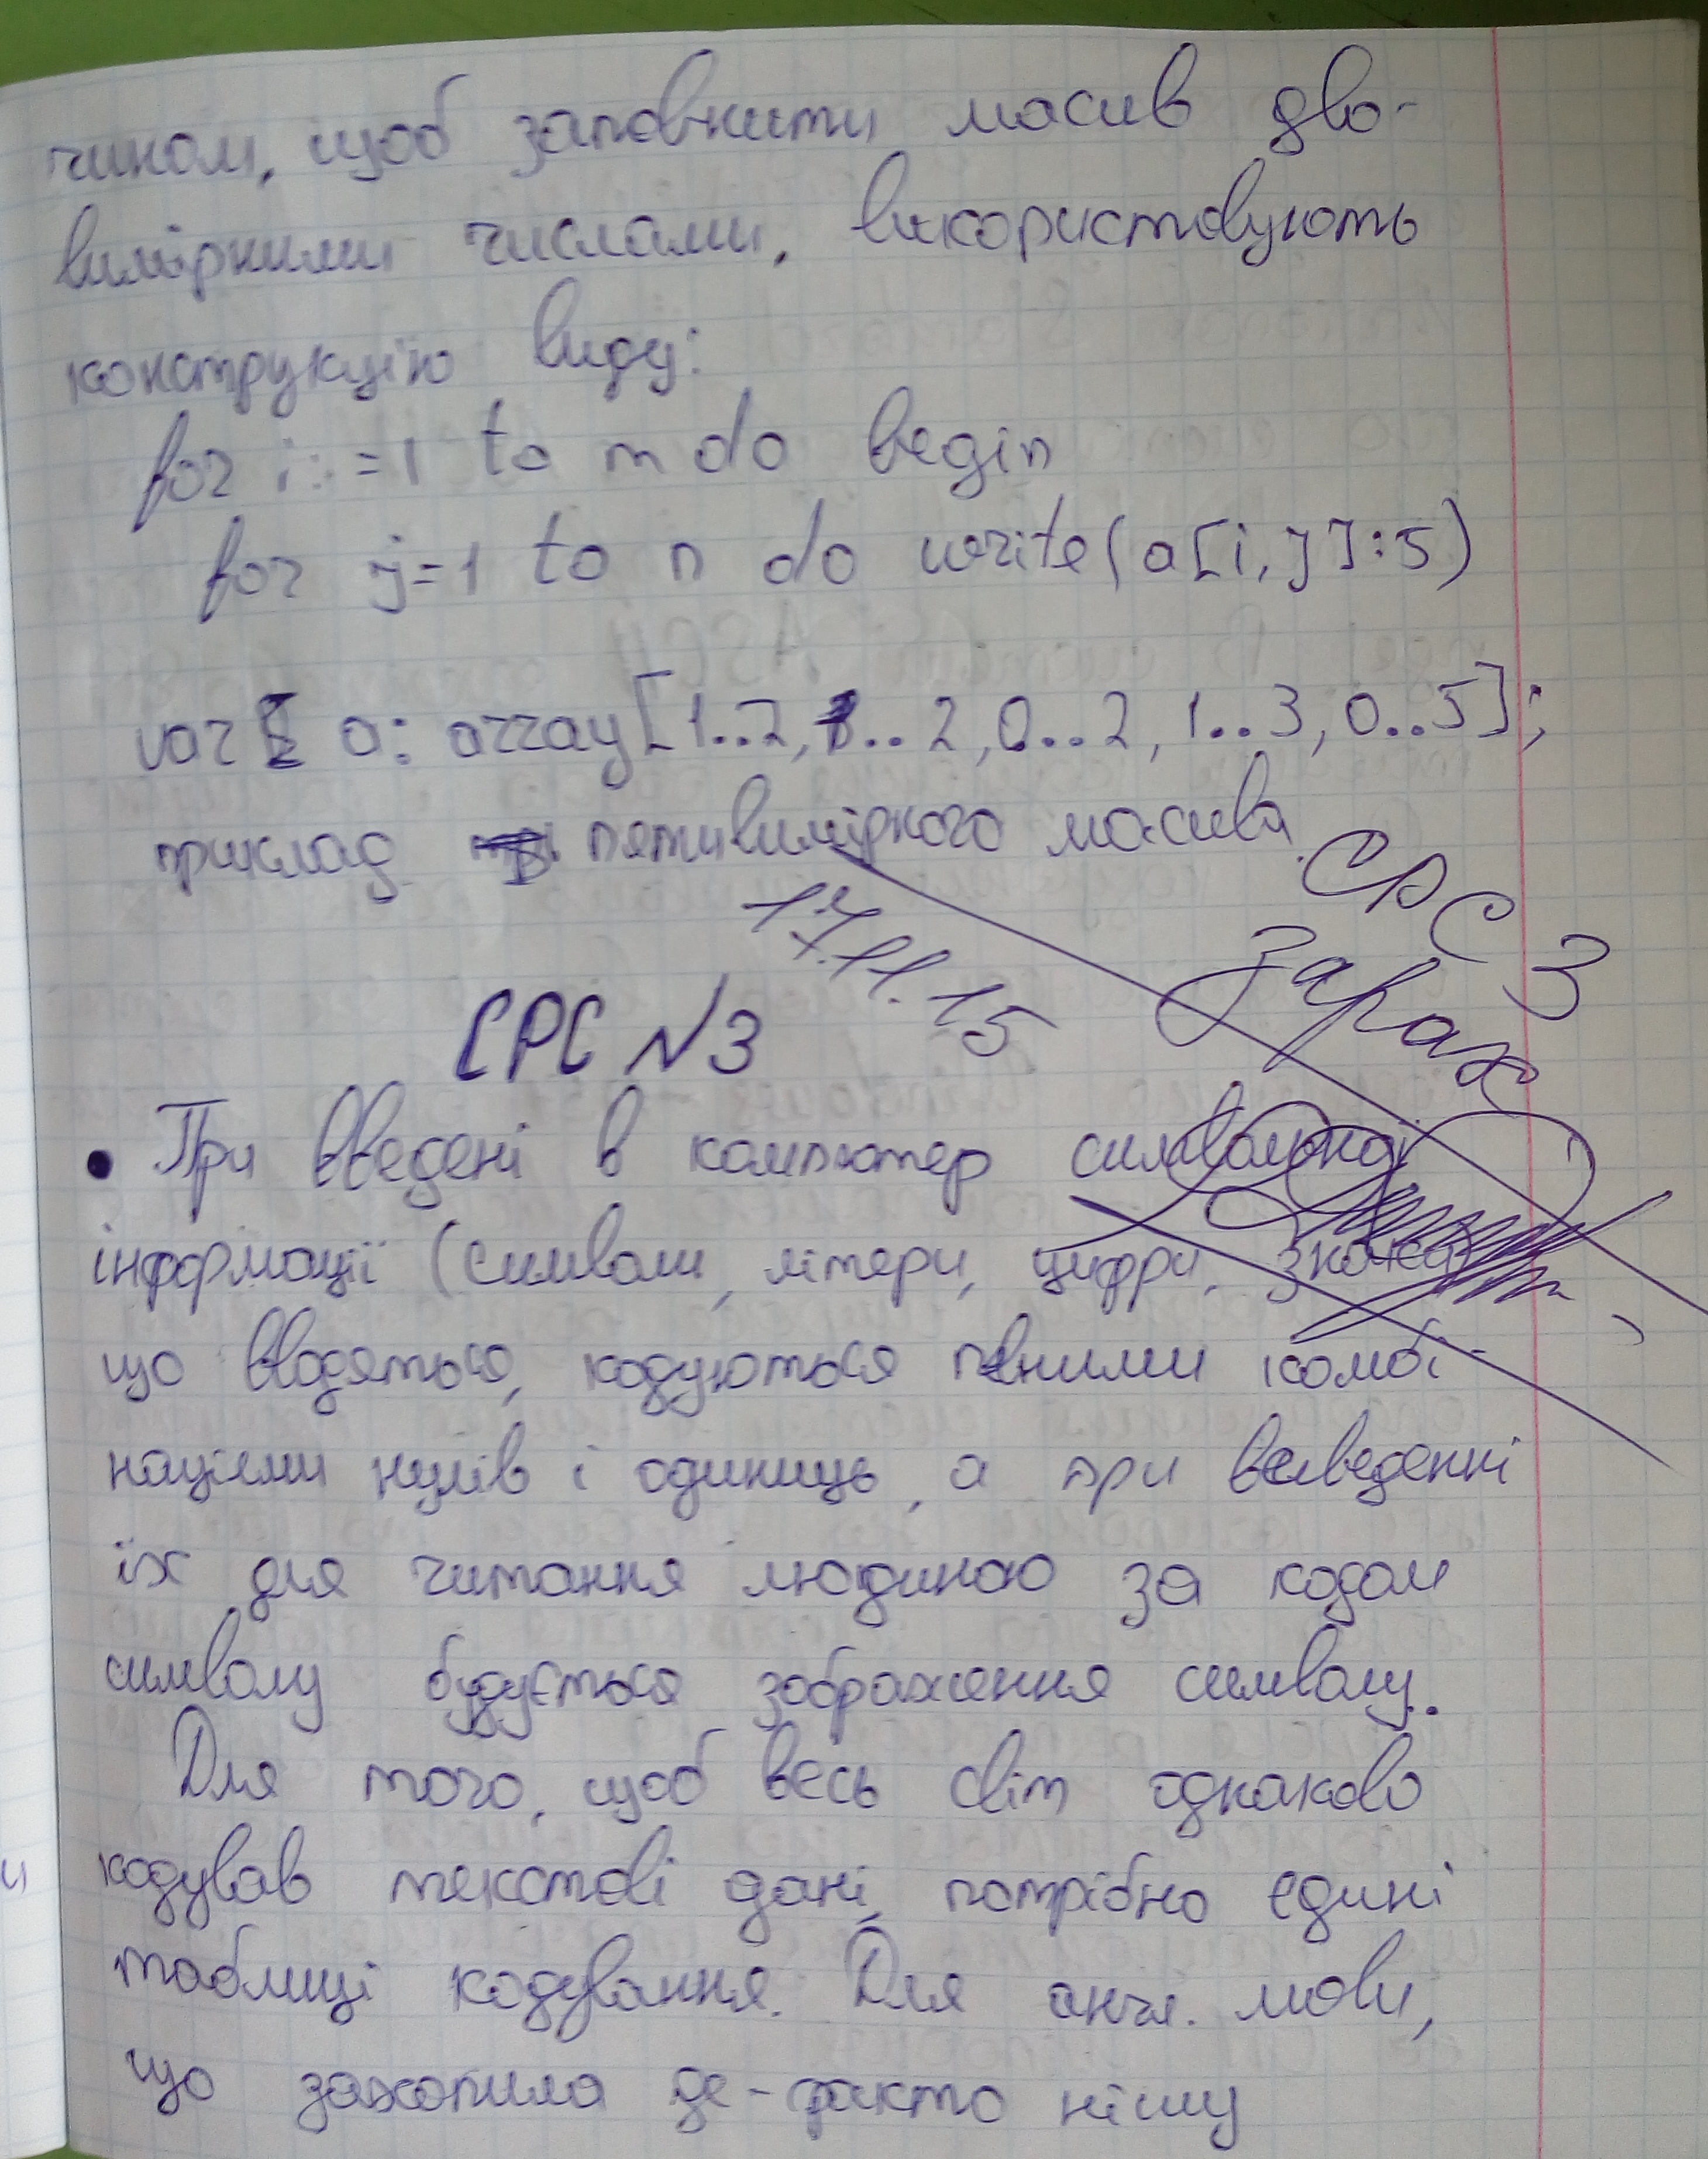 чином, щоб заповнити масив дво-
вимірними числами, використовують
конструкцію виду:
for i:=1 to m do begin
for j=1 to n do write(a[i,j]:5)
var a: array[1..2, 1..2, 0..2, 1..3, 0..5];
приклад пятивимірного масива.
СРС 3
зарах
17.11.15
СРС №3
• При введені в компютер символьної
інформації (символи, літери, цифри, знаки)
що вводяться, кодуються певними комбі-
націями нулів і одиниць, а при виведенні
їх для читання людиною за кодом
символу будується зображення символу.
Для того, щоб весь світ однаково
кодував текстові дані, потрібно єдині
таблиці кодування. Для англ. мови,
що захопила де-факто нішу